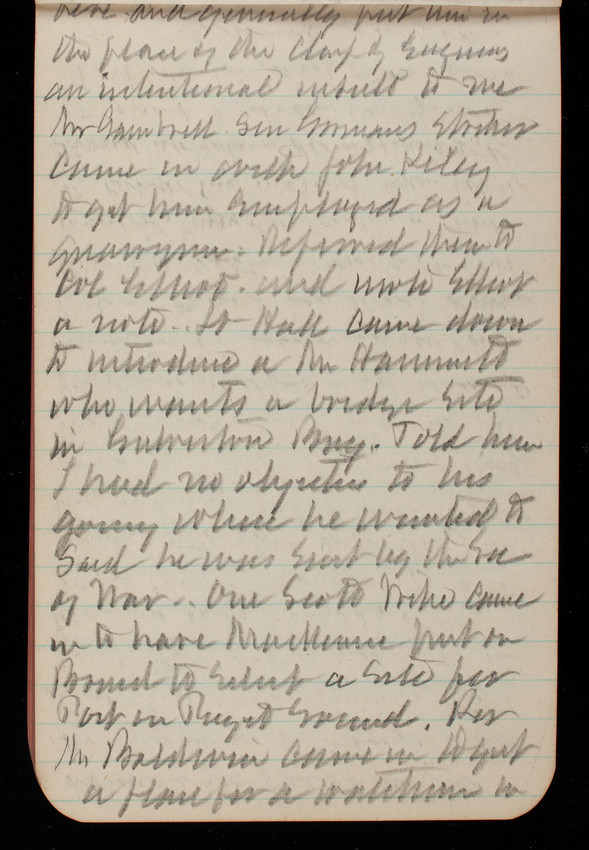 here and generally put him in
the place of the Chief of Engineers
an intentional insult to me
Mr Gambrell. Sen Gormans
Came in with John Kiley
to get him Employed as a
Referred them to
Col Elliot. and wrote Elliot
a note. Lt Hall came down
to introduce a Mr
who wants a bridge Site
in Galveston Bay. Told him
I had no objection to his
going where he wanted to
Said he was Sent by the Sec
of War. One Scott came
in to have put on
Board to Select a Site for
Port on Puget Sound. Rev
Mr Baldwin came in to get
a place for a watchman in